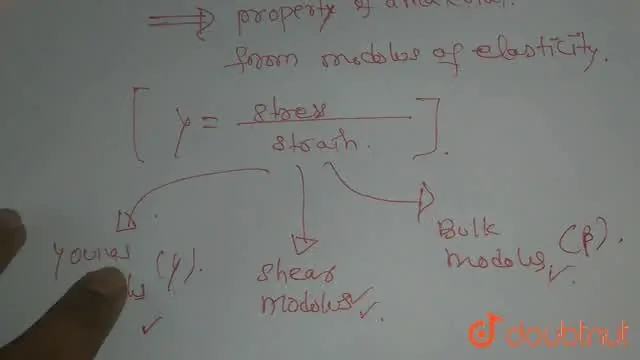 ⇒ property of a material.
from modolus of elasticity.
[ y = stress / strain. ].
Youngs (y).
shear modolus
Bulk modolus (β).
doubtnut